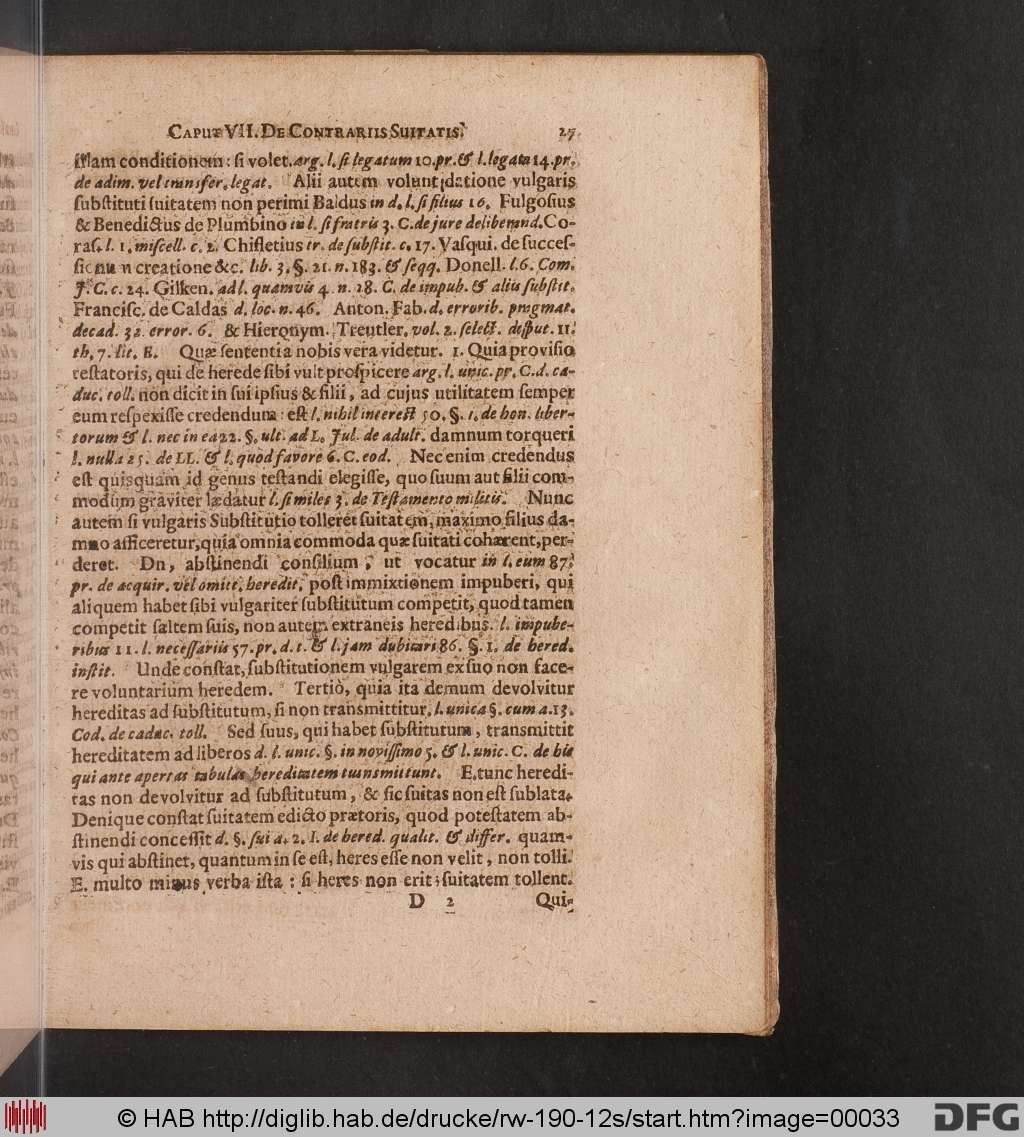 CAPUT VII. DE CONTRARIIS SUITATIS. 27
istam conditionem: si volet. arg. l. si legatum 10. pr. & l. legata 14. pr.
de adim. vel transfer. legat. Alii autem volunt, datione vulgaris
substituti suitatem non perimi Baldus in d. l. si filius 16. Fulgosius
& Benedictus de Plumbino in l. si fratris 3. C. de jure deliberand. Co-
ras. l. 1. miscell. c. 2. Chifletius tr. de substit. c. 17. Vasqui. de succes-
creatione &c. lib. 3. §. 21. n. 183. & seqq. Donell. l. 6. Com.
J. C. c. 24. Gilken. ad l. quamvis 4. n. 28. C. de impub. & aliis substit.
Francisc. de Caldas d. loc. n. 46. Anton. Fab. d. errorib. pragmat.
decad. 32. error. 6. & Hieronym. Treutler. vol. 2. select. disput. 11.
th. 7. lit. E. Quæ sententia nobis vera videtur. 1. Quia provisio
testatoris, qui de herede sibi vult prospicere arg. l. unic. pr. C. d. ca-
duc. toll. non dicit in sui ipsius & filii, ad cujus utilitatem semper
eum respexisse credendum est l. nihil interest 50. §. 1. de bon. liber-
torum & l. nec in ea 22. §. ult. ad L. Jul. de adult. damnum torqueri
l. nulla 25. de LL. & l. quod favore 6. C. eod. Nec enim credendus
est quisquam id genus testandi elegisse, quo suum aut filii com-
modum graviter lædatur l. si miles 3. de Testamento militis. Nunc
autem si vulgaris Substitutio tolleret suitatem, maximo filius da-
mno afficeretur, quia omnia commoda quæ suitati cohærent, per-
deret. Dn, abstinendi consilium, ut vocatur in l. eum 87.
pr. de acquir. vel omitt. heredit. post immixtionem impuberi, qui
aliquem habet sibi vulgariter substitutum competit, quod tamen
competit saltem suis, non autem extraneis heredibus. l. impube-
ribus 11. l. necessariis 57. pr. d. t. & l. jam dubitari 86. §. 1. de hered.
instit. Unde constat, substitutionem vulgarem ex suo non face-
re voluntarium heredem. Tertiò, quia ita demum devolvitur
hereditas ad substitutum, si non transmittitur, l. unica §. cum a. 13.
Cod. de caduc. toll. Sed suus, qui habet substitutum, transmittit
hereditatem ad liberos d. l. unic. §. in novissimo 5. & l. unic. C. de his
qui ante apertas tabulas hereditatem transmittunt. E. tunc heredi-
tas non devolvitur ad substitutum, & sic suitas non est sublata.
Denique constat suitatem edicto prætoris, quod potestatem ab-
stinendi concessit d. §. sui a. 2. I. de hered. qualit. & differ. quam-
vis qui abstinet, quantum in se est, heres esse non velit, non tolli.
E. multo minus verba ista: si heres non erit; suitatem tollent.
D 2 Qui-
© HAB http://diglib.hab.de/drucke/rw-190-12s/start.htm?image=00033
DFG